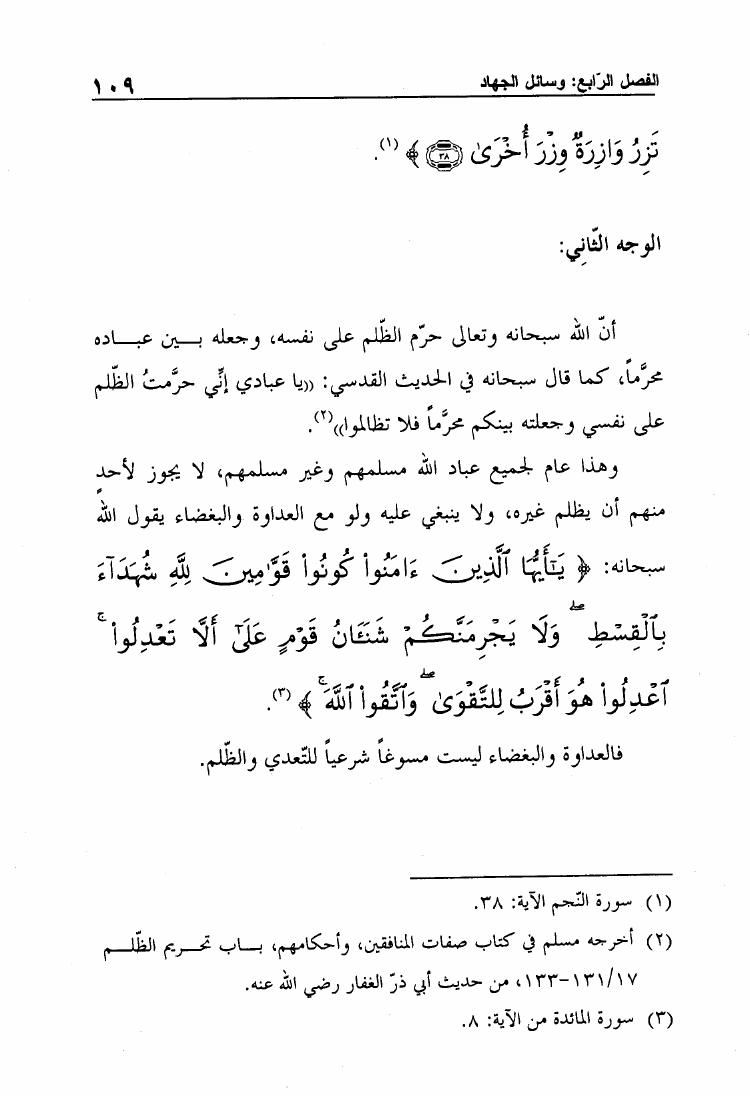 الفصل الرّابع: وسائل الجهاد ١٠٩
تَزِرُ وَازِرَةٌ وِزْرَ أُخْرَىٰ ﴿٣٨﴾ ﴾(١).
الوجه الثّاني:
أنّ الله سبحانه وتعالى حرّم الظّلم على نفسه، وجعله بـــين عبـــاده
محرَّماً، كما قال سبحانه في الحديث القدسي: ((يا عبادي إنِّي حرَّمتُ الظّلم
على نفسي وجعلته بينكم محرَّماً فلا تظالموا))(٢).
وهذا عام لجميع عباد الله مسلمهم وغير مسلمهم، لا يجوز لأحدٍ
منهم أن يظلم غيره، ولا ينبغي عليه ولو مع العداوة والبغضاء يقول الله
سبحانه: ﴿ يَـٰٓأَيُّهَا ٱلَّذِينَ ءَامَنُوا۟ كُونُوا۟ قَوَّٰمِينَ لِلَّهِ شُهَدَآءَ
بِٱلْقِسْطِ ۖ وَلَا يَجْرِمَنَّكُمْ شَنَـَٔانُ قَوْمٍ عَلَىٰٓ أَلَّا تَعْدِلُوا۟ ۚ
ٱعْدِلُوا۟ هُوَ أَقْرَبُ لِلتَّقْوَىٰ ۖ وَٱتَّقُوا۟ ٱللَّهَ ۚ ﴾(٣).
فالعداوة والبغضاء ليست مسوغاً شرعياً للتّعدي والظّلم.
(١) سورة النّجم الآية: ٣٨.
(٢) أخرجه مسلم في كتاب صفات المنافقين، وأحكامهم، بـــاب تحـــريم الظّلـــم
١٧/١٣١-١٣٣، من حديث أبي ذرّ الغفار رضي الله عنه.
(٣) سورة المائدة من الآية: ٨.